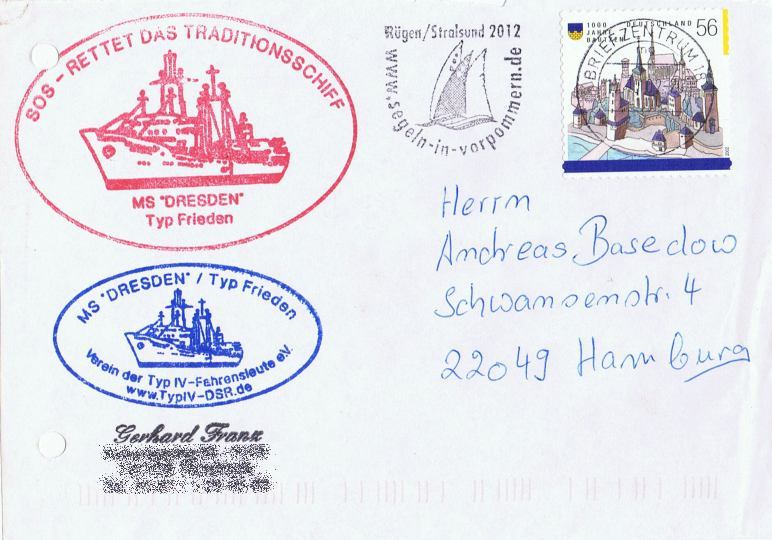 SOS - RETTET DAS TRADITIONSSCHIFF
MS "DRESDEN"
Typ Frieden
Rügen/Stralsund 2012
www.segeln-in-vorpommern.de
1000 JAHRE BAUTZEN
DEUTSCHLAND
56
BRIEFZENTRUM
2002
Herrn
Andreas Basedow
Schwansenstr. 4
22049 Hamburg
MS "DRESDEN" / Typ Frieden
Verein der Typ IV-Fahrensleute e.V.
www.TypIV-DSR.de
Gerhard Franz